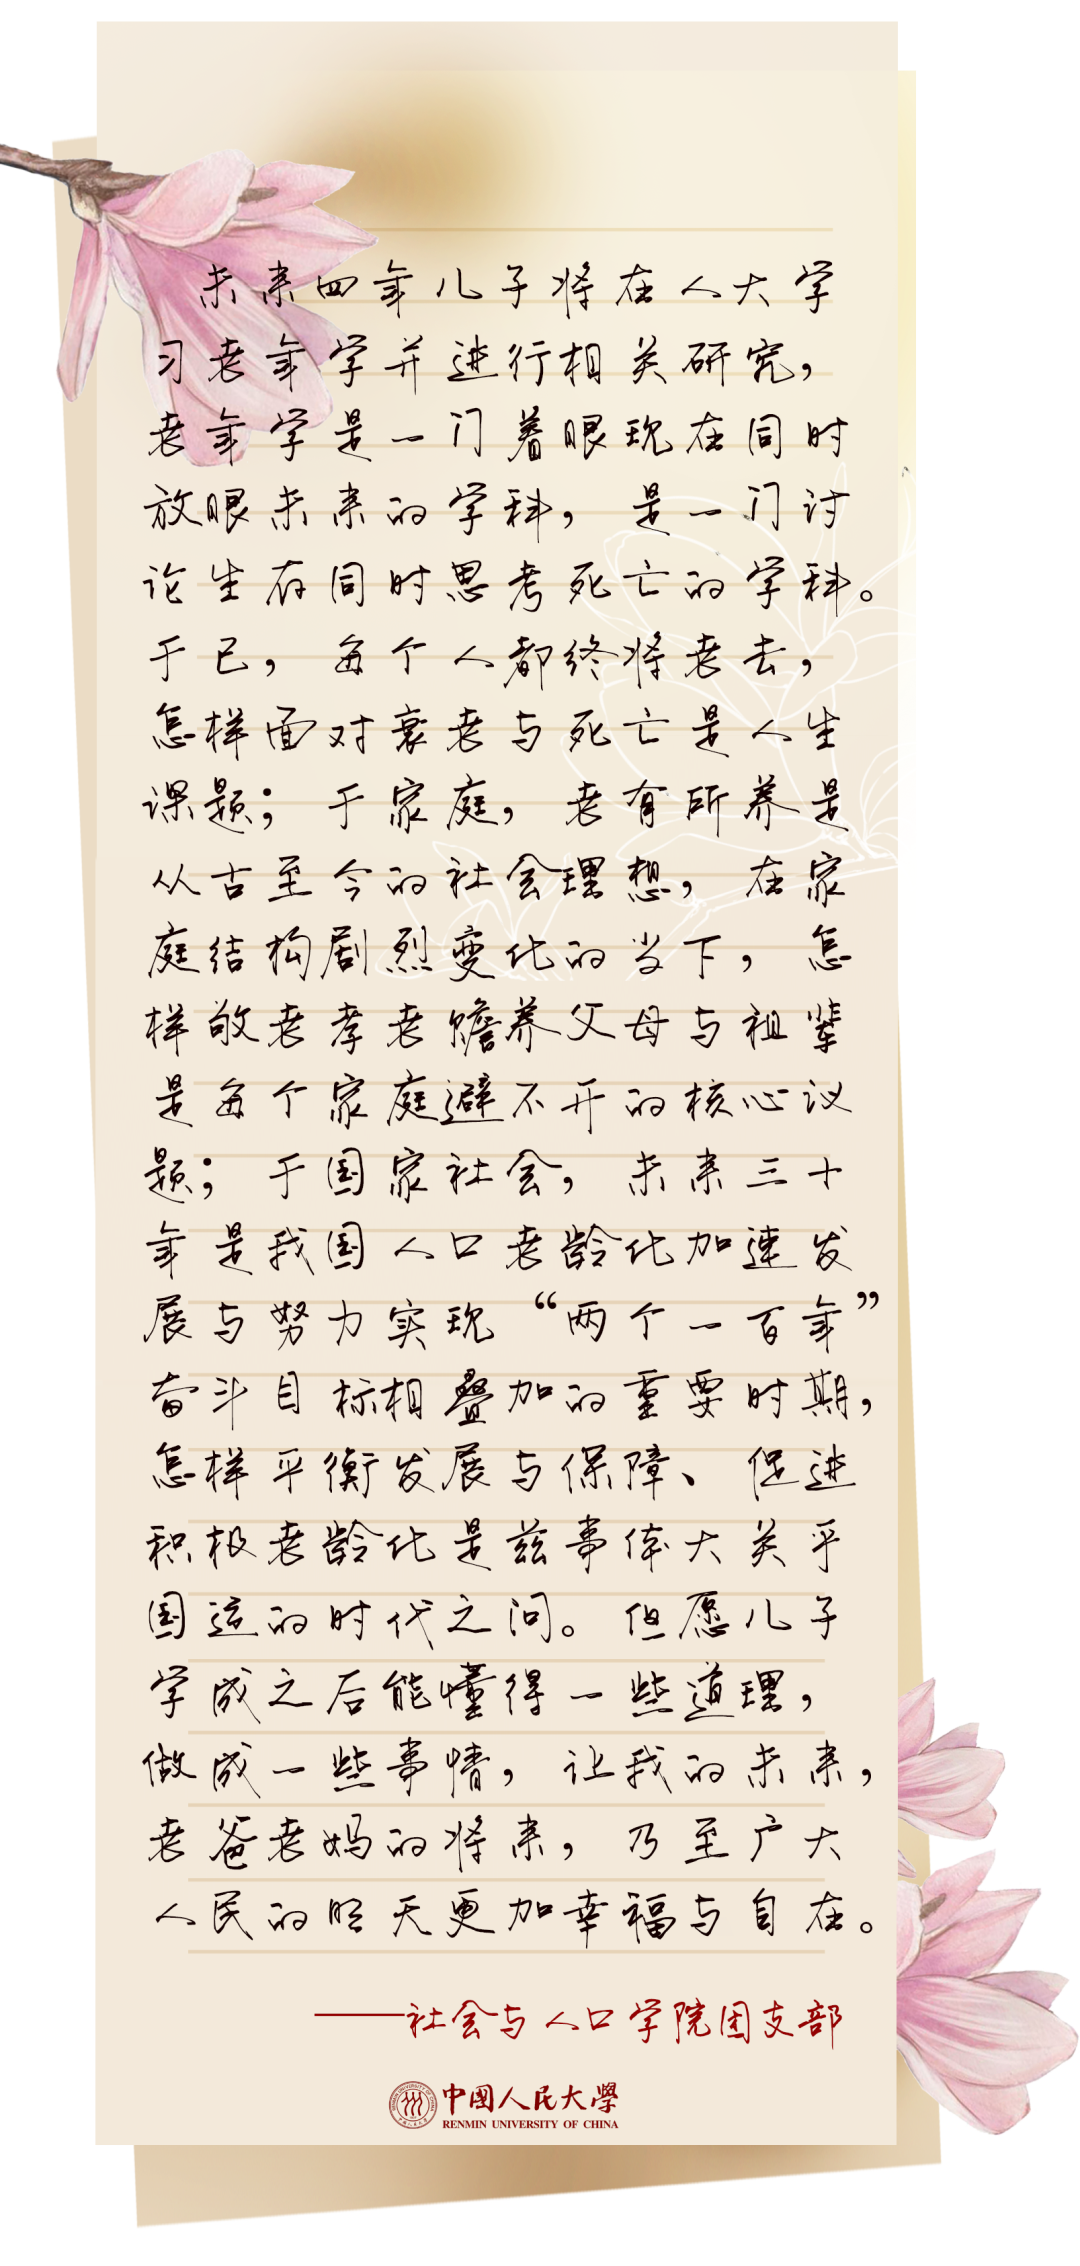 未来四年儿子将在人大学
习老年学并进行相关研究，
老年学是一门着眼现在同时
放眼未来的学科，是一门讨
论生存同时思考死亡的学科。
于已，每个人都终将老去，
怎样面对衰老与死亡是人生
课题；于家庭，老有所养是
从古至今的社会理想，在家
庭结构剧烈变化的当下，怎
样敬老孝老赡养父母与祖辈
是每个家庭避不开的核心议
题；于国家社会，未来三十
年是我国人口老龄化加速发
展与努力实现“两个一百年”
奋斗目标相叠加的重要时期，
怎样平衡发展与保障、促进
积极老龄化是兹事体大关乎
国运的时代之问。但愿儿子
学成之后能懂得一些道理，
做成一些事情，让我的未来，
老爸老妈的将来，乃至广大
人民的明天更加幸福与自在。
——社会与人口学院团支部
中國人民大學
RENMIN UNIVERSITY OF CHINA